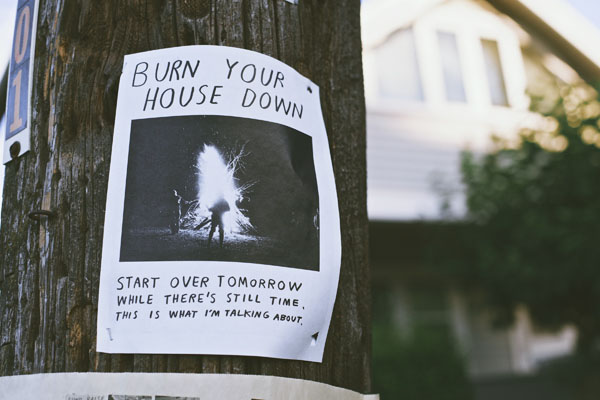 01
BURN YOUR
HOUSE DOWN
START OVER TOMORROW
WHILE THERE'S STILL TIME.
THIS IS WHAT I'M TALKING ABOUT.